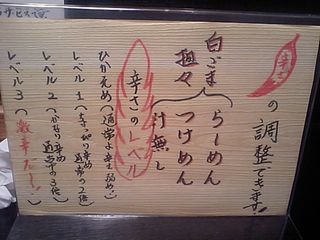 辛さの調整できます!
白ごま担々
らーめん
つけめん
汁無し
辛さのレベル
ひかえめ(通常より辛さ弱め)
レベル1(ちょっぴり辛め 通常の2倍)
レベル2(かなり辛め 通常の3倍)
レベル3(激辛だー!)